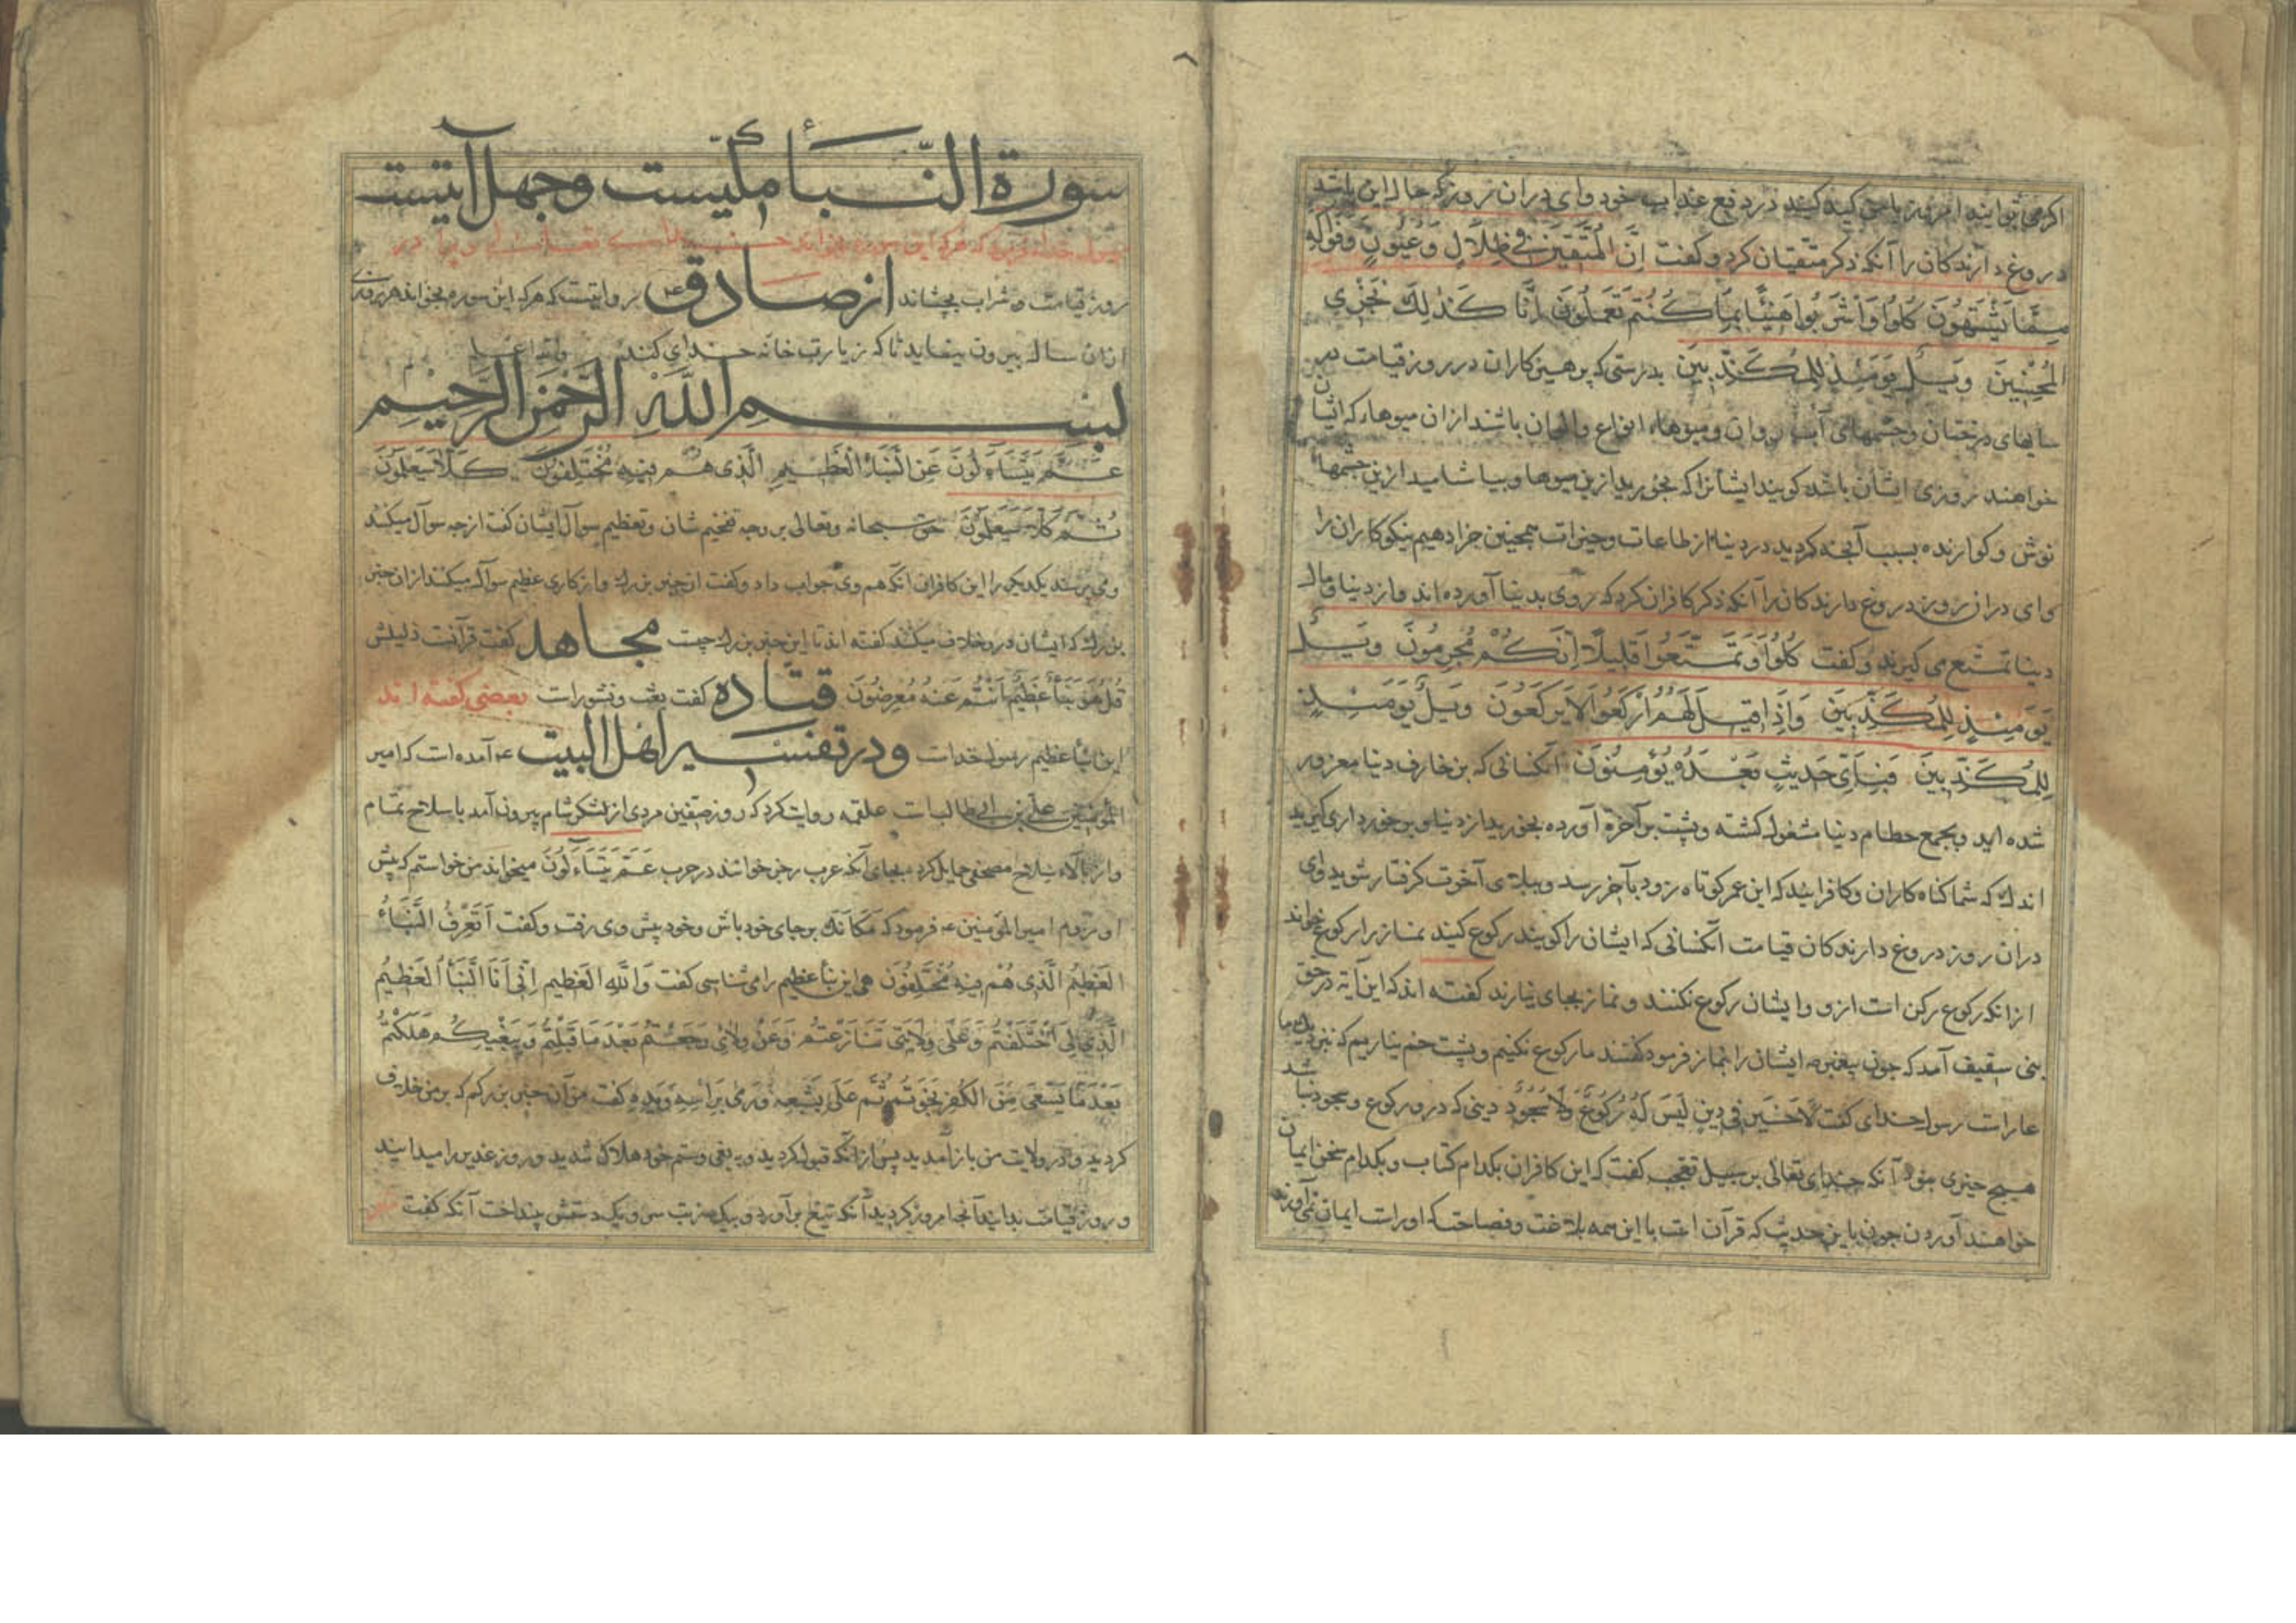 اکر می توانید امروز با من کید کنید در دفع عذاب خود وای دران روز که حال این باشد
دروغ دارندکان را آنکه ذکر متقیان کرد و کفت اِنَّ الْمُتَّقِينَ فِی ظِلَالٍ وَعُيُونٍ وَفَوَاكِهَ
مِمَّا يَشْتَهُونَ كُلُوا وَاشْرَبُوا هَنِيئًا بِمَا كُنْتُمْ تَعْمَلُونَ اِنَّا كَذَلِكَ نَجْزِی
الْمُحْسِنِينَ وَيْلٌ يَوْمَئِذٍ لِلْمُكَذِّبِينَ بدرستی که پرهیزکاران در روز قیامت در
سایهای درختان وچشمهای آب روان ومیوهاء انواع والوان باشند ازان میوهاء که ایشان
خواهند روزی ایشان باشد کویند ایشانرا که بخورید ازین میوها وبیاشامید ازین چشمها
نوش وکوارنده بسبب آنچه کردید در دنیا از طاعات وخیرات همچنین جزا دهیم نیکوکاران را
وای دران روز دروغ دارندکان را آنکه ذکر کافران کرد که روی بدنیا آورده اند واز دنیا ومال
دنیا تمتع می کیرند و کفت كُلُوا وَتَمَتَّعُوا قَلِيلًا اِنَّكُمْ مُجْرِمُونَ وَيْلٌ
يَوْمَئِذٍ لِلْمُكَذِّبِينَ وَاِذَا قِيلَ لَهُمُ ارْكَعُوا لَا يَرْكَعُونَ وَيْلٌ يَوْمَئِذٍ
لِلْمُكَذِّبِينَ فَبِاَیِّ حَدِيثٍ بَعْدَهُ يُؤْمِنُونَ آنکسانی که بزخارف دنیا مغرور
شده اید وبجمع حطام دنیا مشغول کشته وپشت بر آخرة آورده بخورید از دنیا وبرخورداری کیرید
اندک که شما کناه کاران وکافرانید که این عمر کوتاه زود بآخر رسد وببلای آخرت کرفتار شوید وای
دران روز دروغ دارندکان قیامت آنکسانی که ایشان را کویند رکوع کنید نماز را رکوع خواند
ازانکه رکوع رکن است ازو وایشان رکوع نکنند ونماز بجای نیارند کفته اند که این آیة در حق
بنی سقیف آمد که چون پیغمبر ص ایشان را نماز فرمود کفتند ما رکوع نکنیم وپشت خم نیاریم که
عار است رسول خدای کفت لَا خَيْرَ فِی دِينٍ لَيْسَ لَهُ رُكُوعٌ وَلَا سُجُودٌ دینی که درو رکوع وسجود نباشد
هیچ خیری نبود آنکه خدای تعالی بر سبیل تعجب کفت که این کافران بکدام کتاب وبکدام سخن ایمان
خواهند آوردن چون باین حدیث که قرآن است با این همه بلاغت وفصاحت که اوراست ایمان نمی آورند
سورة النبأ مکیست وچهل آیتست
رسول خدای فرمود که هرکه این سوره بخواند
روز قیامت شراب بچشاند از صادق ع روایتست که هرکه این سوره بخواند هر روزی
ازان سال بیرون نیاید تا که زیارت خانه خدای کند
بسم الله الرحمن الرحیم
عَمَّ يَتَسَاءَلُونَ عَنِ النَّبَاِ الْعَظِيمِ الَّذِی هُمْ فِيهِ مُخْتَلِفُونَ كَلَّا سَيَعْلَمُونَ
ثُمَّ كَلَّا سَيَعْلَمُونَ حق سبحانه وتعالی بر وجه تفخیم شان وتعظیم سوال ایشان کفت از چه سوال میکنند
ومی پرسند یکدیکر را این کافران آنکه هم وی جواب داد وکفت از چیز بزرک واز کاری عظیم سوال میکنند ازان چیز
بزرک که ایشان درو خلاف میکنند کفته اند تا این چیز بزرک چیست مجاهد کفت قرآنست دلیلش
قُلْ هُوَ نَبَأٌ عَظِيمٌ اَنْتُمْ عَنْهُ مُعْرِضُونَ قتاده کفت بعث ونشورات بعضی کفته اند
این نبأ عظیم رسول خداست ودر تفسیر اهل البیت ع آمده است که امیر
المؤمنین علی بن ابی طالب است علقمه روایت کرد که روز صفین مردی از لشکر شام بیرون آمد با سلاح تمام
واز بالاء سلاح مصحفی حمایل کرد وبجای آنکه عرب رجز خوانند در حرب عَمَّ يَتَسَاءَلُونَ میخواند من خواستم که پیش
او روم امیر المؤمنین ع فرمود که مَكَانَكَ بر جای خود باش وخود پیش وی رفت وکفت اَتَعْرِفُ النَّبَأَ
الْعَظِيمَ الَّذِی هُمْ فِيهِ مُخْتَلِفُونَ هی این نبأ عظیم را می شناسی کفت وَاللهِ الْعَظِيمِ اِنِّی اَنَا النَّبَأُ الْعَظِيمُ
الَّذِی فِیَّ اخْتَلَفْتُمْ وَعَلَى وِلَايَتِی تَنَازَعْتُمْ وَعَنْ وِلَائِی رَجَعْتُمْ بَعْدَ مَا قَبِلْتُمْ وَبِبَغْيِكُمْ هَلَكْتُمْ
بَعْدَ مَا بِسَيْفِی مِنَ الْكُفْرِ نَجَوْتُمْ ثُمَّ وَرَمَى بِرَأْسِهِ وَيَدِهِ کفت من آن چیز بزرکم که بر من خلاف
کردید ودر ولایت من باز آمدید پس ازانکه قبول کردید وبه بغی وستم خود هلاک شدید وروز غدیر را میدانید
وروز قیامت بدانید آنچه امروز کردید آنکه تیغ برآورد وبیک ضربت سر ویک دستش بینداخت آنکه کفت